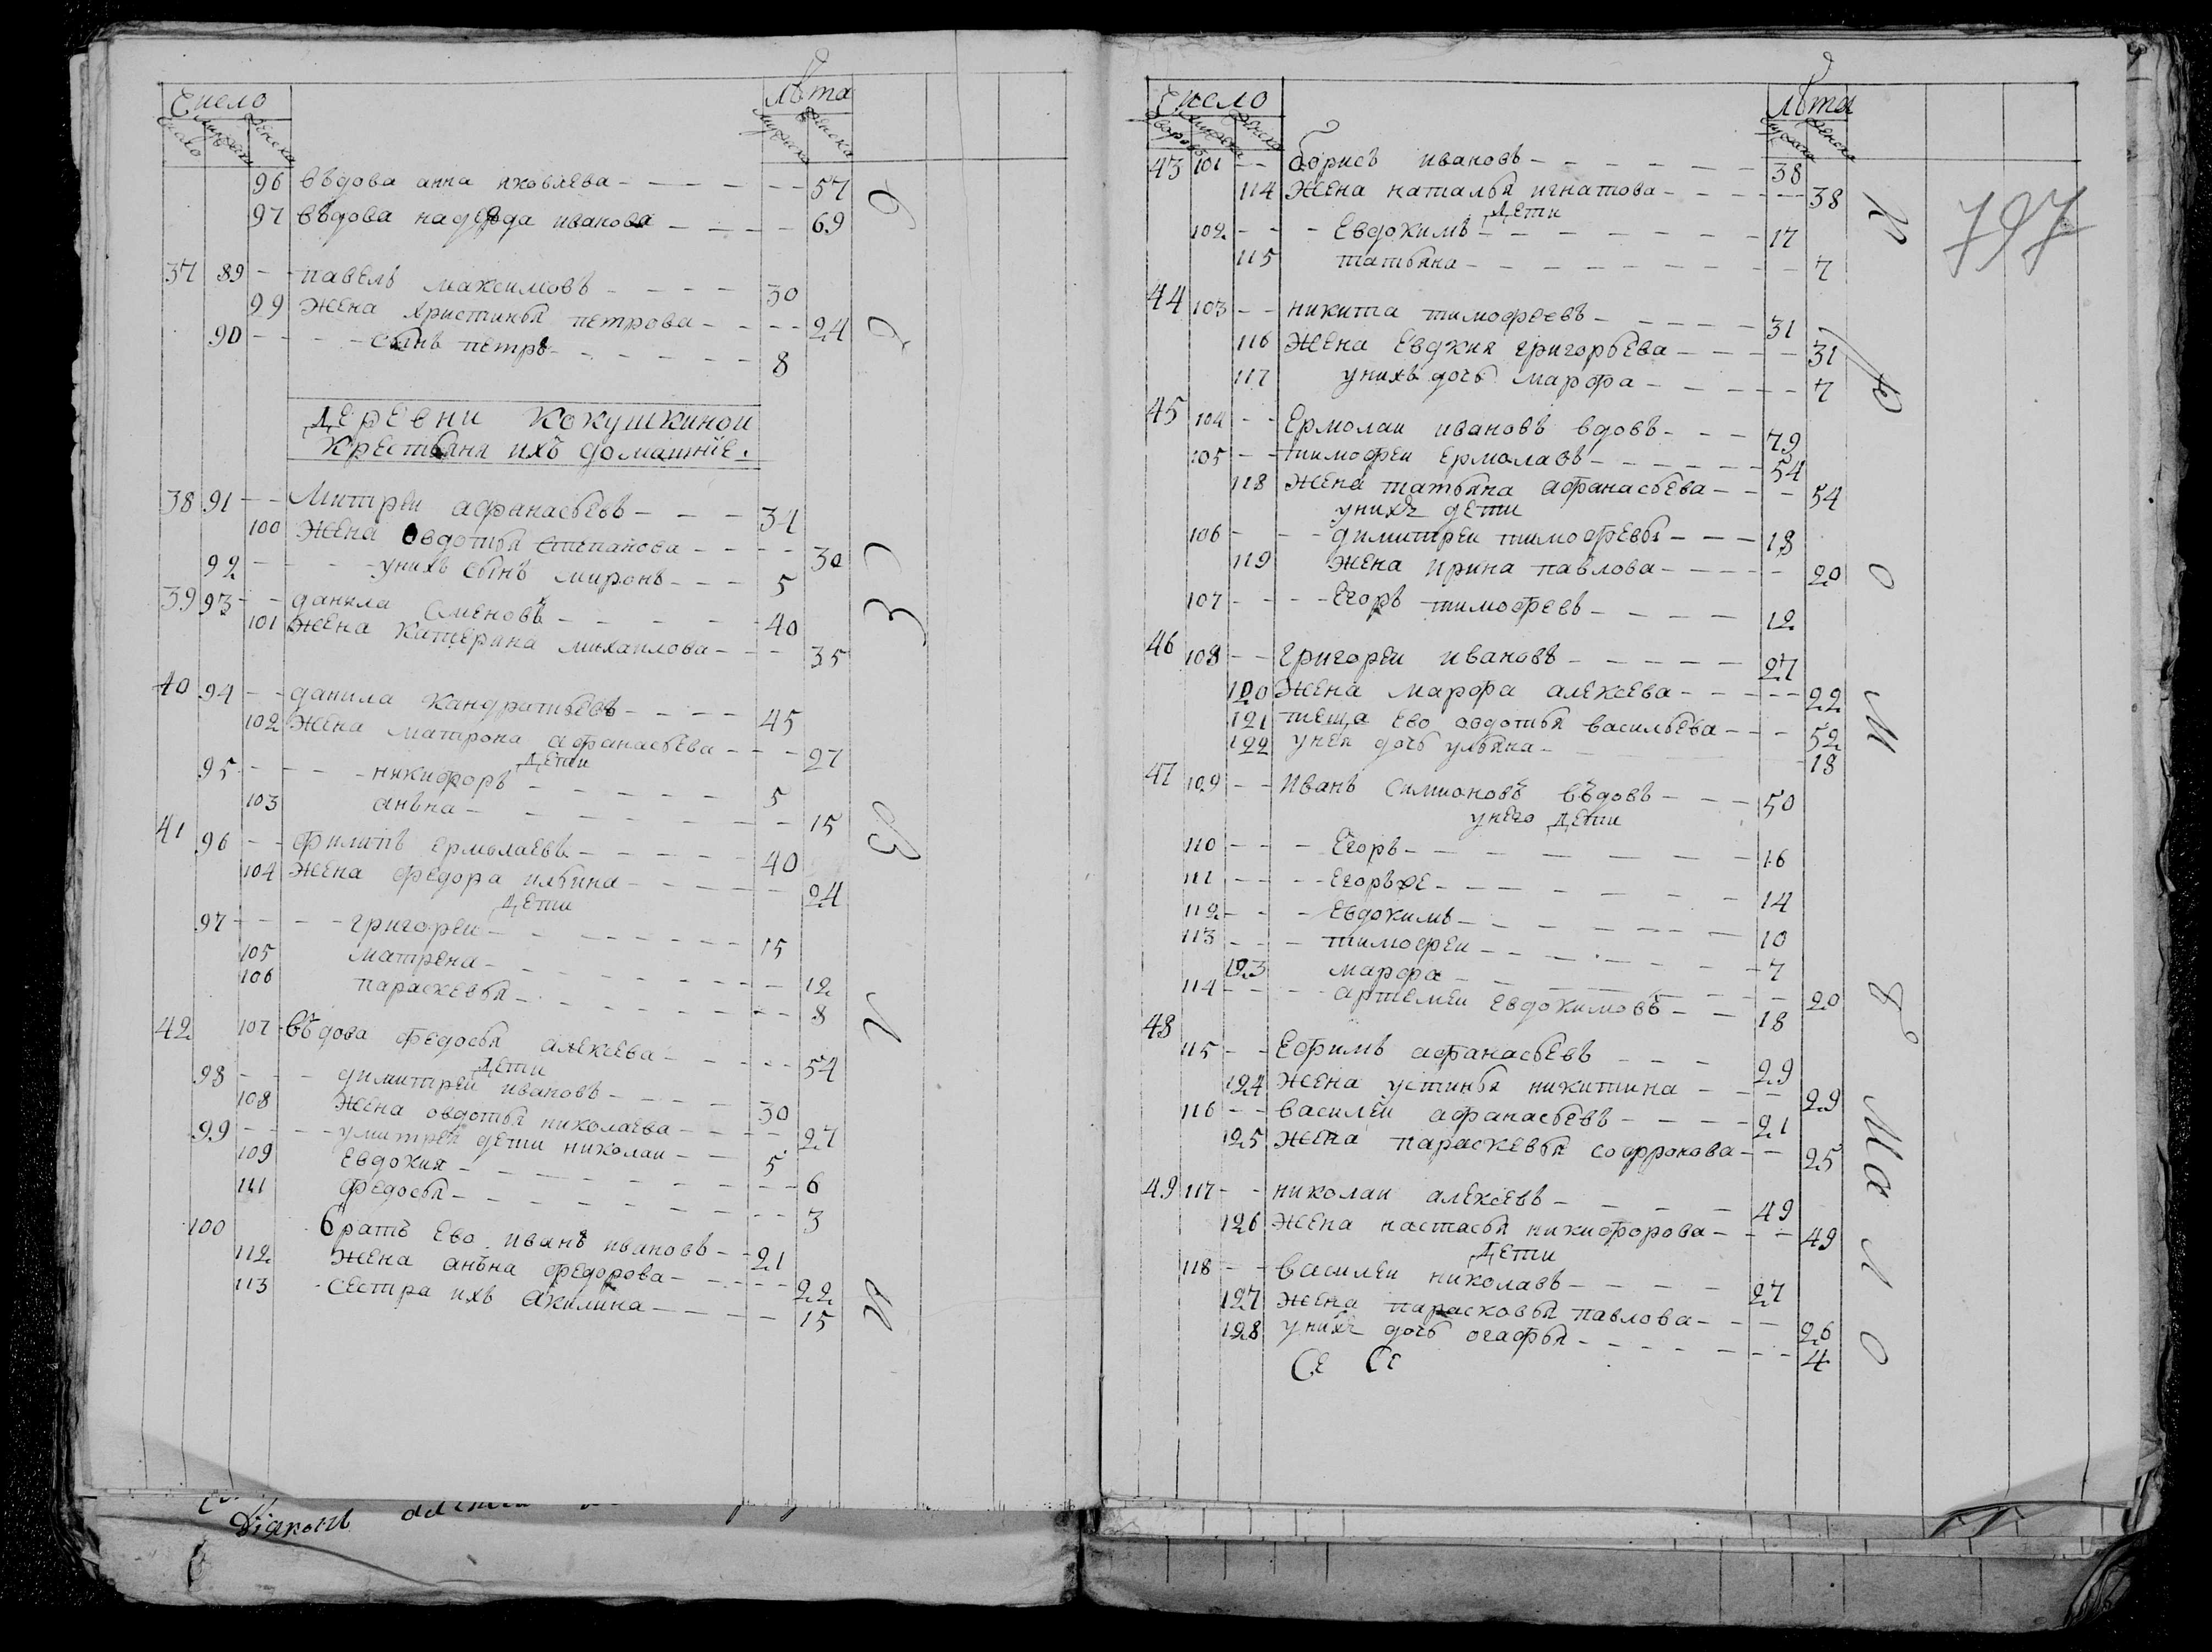 Число Лѣта
число мужеска женска мужеска женска
96 вѣдова анна яковлева 57
97 вѣдова надежда иванова 69
37 89 павелъ максимовъ 30
99 жена христинья петрова 24
90 сынъ петръ 8
ДЕРЕВНИ КОКУШКИНОИ
Крестьяня ихъ домашнїе.
38 91 Митреи афанасьевъ 31
100 жена овдотья степанова 30
92 унихъ сынъ миронъ 5
39 93 данила Сменовъ 40
101 жена катерина михаилова 35
40 94 данила кандратьевъ 45
102 жена матрона афанасьева 27
Дети
95 никифоръ 5
103 анъна 15
41 96 филипъ ермолаевъ 40
104 жена федора ильина 24
Дети
97 григореи 15
105 матрена 12
106 параскевья 8
42 107 вѣдова федосья алексева 54
Дети
98 димитреи ивановъ 30
108 жена овдотья николаева 27
99 умитрея дети николаи 5
109 Евдокия 6
111 федосья 3
100 братъ ево иванъ ивановъ 21
112 жена анъна федорова 22
113 сестра ихъ акилина 15
Дїяконъ
Число Лѣта
дворовъ мужеска женска мужеска женска
43 101 борисъ ивановъ 38
114 жена наталья игнатова 38
Дети
102 Евдокимъ 17
115 татьяна 7
44 103 никита тимофеевъ 31
116 жена Евдкия григорьева 31
117 унихъ дочь марфа 7
45 104 Ермолаи ивановъ вдовъ 79
105 тимофеи Ермолавъ 54
118 жена татьяна афанасьева 54
унихъ дети
106 димитреи тимофевы 18
119 жена ирина павлова 20
107 Егоръ тимофеевъ 12
46 108 григореи ивановъ 27
120 жена марфа алексева 22
121 теща ево овдотья васильева 52
122 унея дочь ульяна 18
47 109 иванъ Симионовъ вѣдовъ 50
унего дети
110 Егоръ 16
111 Егоръже 14
112 Евдокимъ 10
113 тимофеи 7
123 марфа 20
114 артемеи Евдокимовъ 18
48 115 Ефимъ афанасьевъ 29
124 жена устинья никитина 29
116 василеи афанасьевъ 21
125 жена параскевья софронова 25
49 117 николаи алексевъ 49
126 жена настасья никифорова 49
Дети
118 василеи николавъ 27
127 жена парасковья павлова 26
128 унихъ дочь огафья 4
Се Се
797